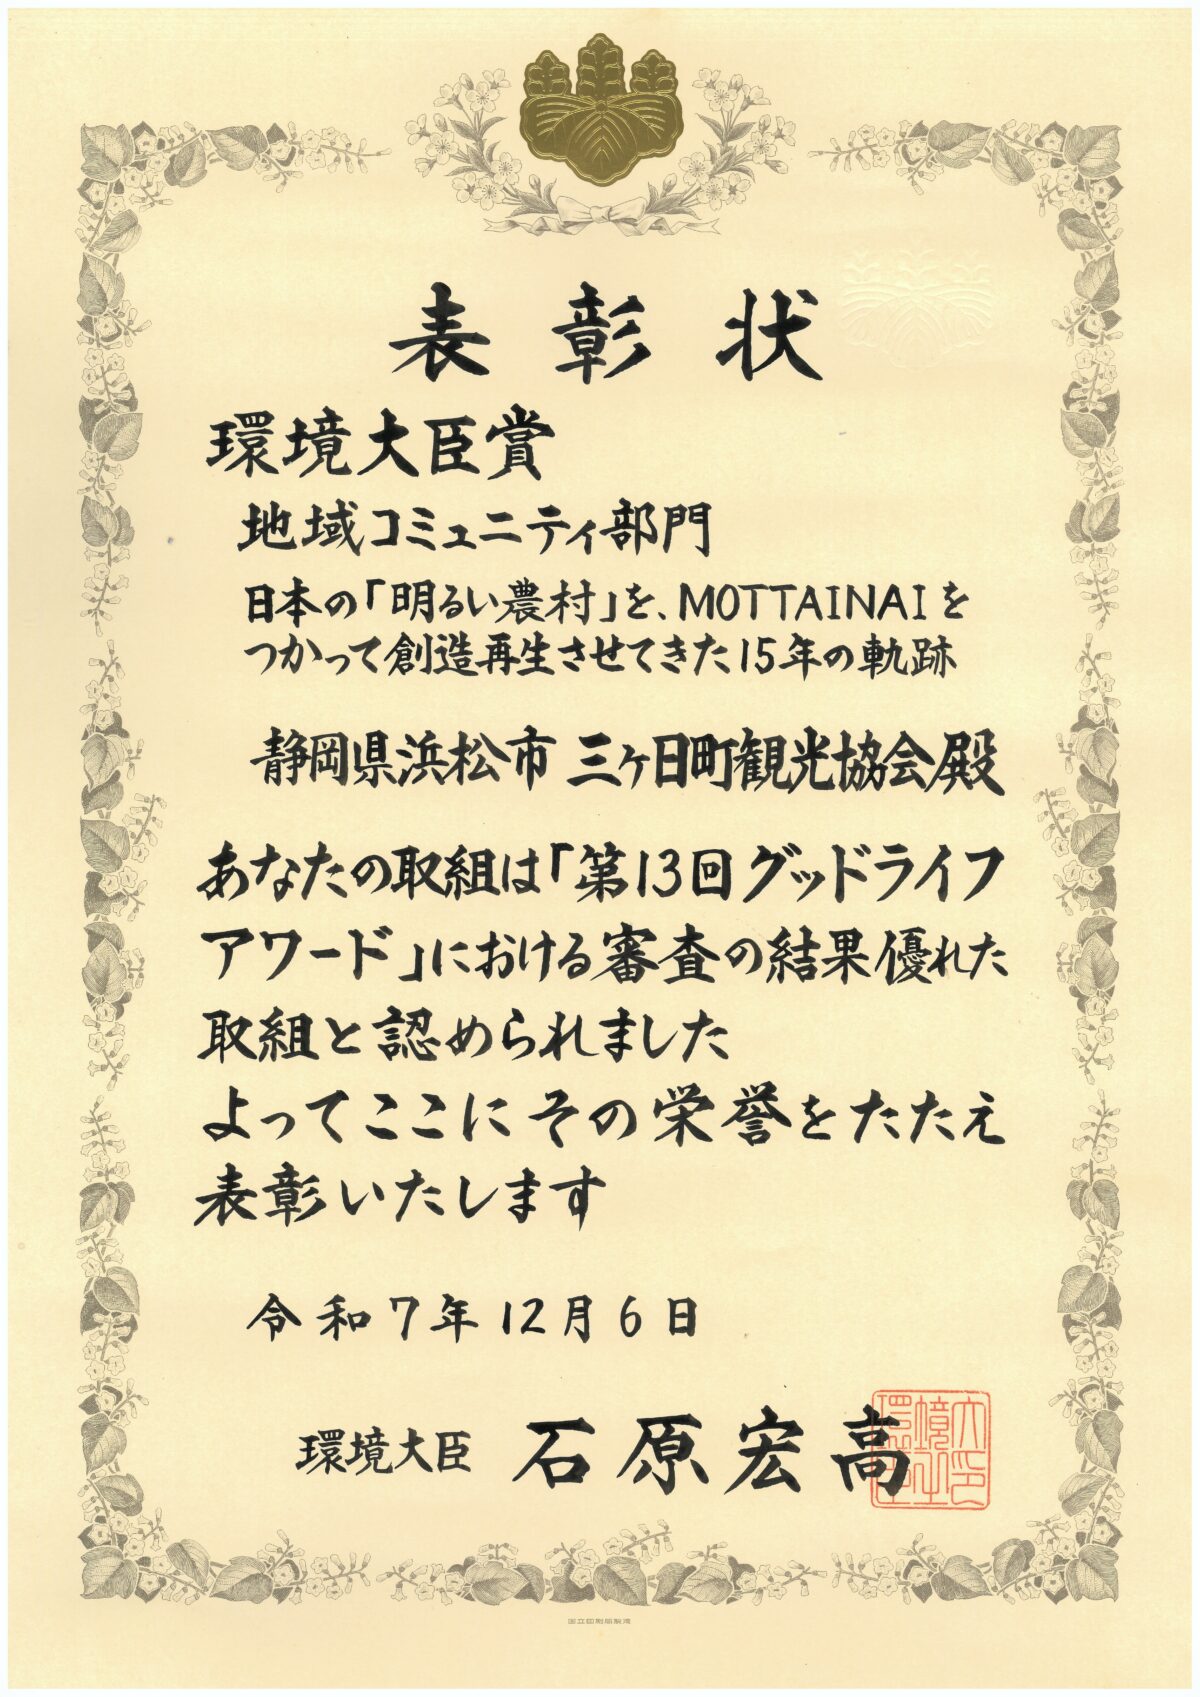 表彰状
環境大臣賞
地域コミュニティ部門
日本の「明るい農村」を、MOTTAINAIを
つかって創造再生させてきた15年の軌跡
静岡県浜松市 三ヶ日町観光協会殿
あなたの取組は「第13回グッドライフ
アワード」における審査の結果優れた
取組と認められました
よってここにその栄誉をたたえ
表彰いたします
令和7年12月6日
環境大臣 石原宏高
国立印刷局製造